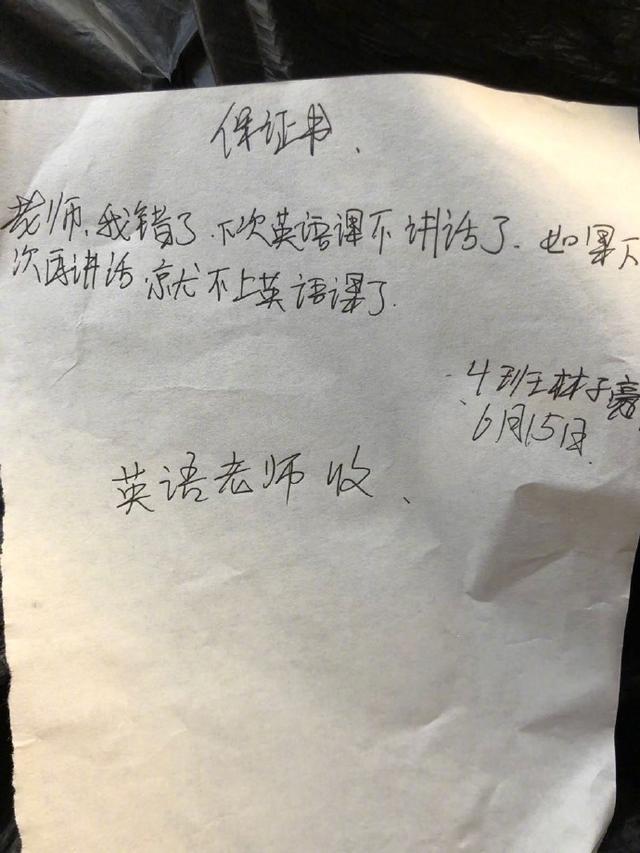 保证书.
老师,我错了.下次英语课不讲话了.如果下
次再讲话就不上英语课了.
4班林子豪
6月15日.
英语老师收、